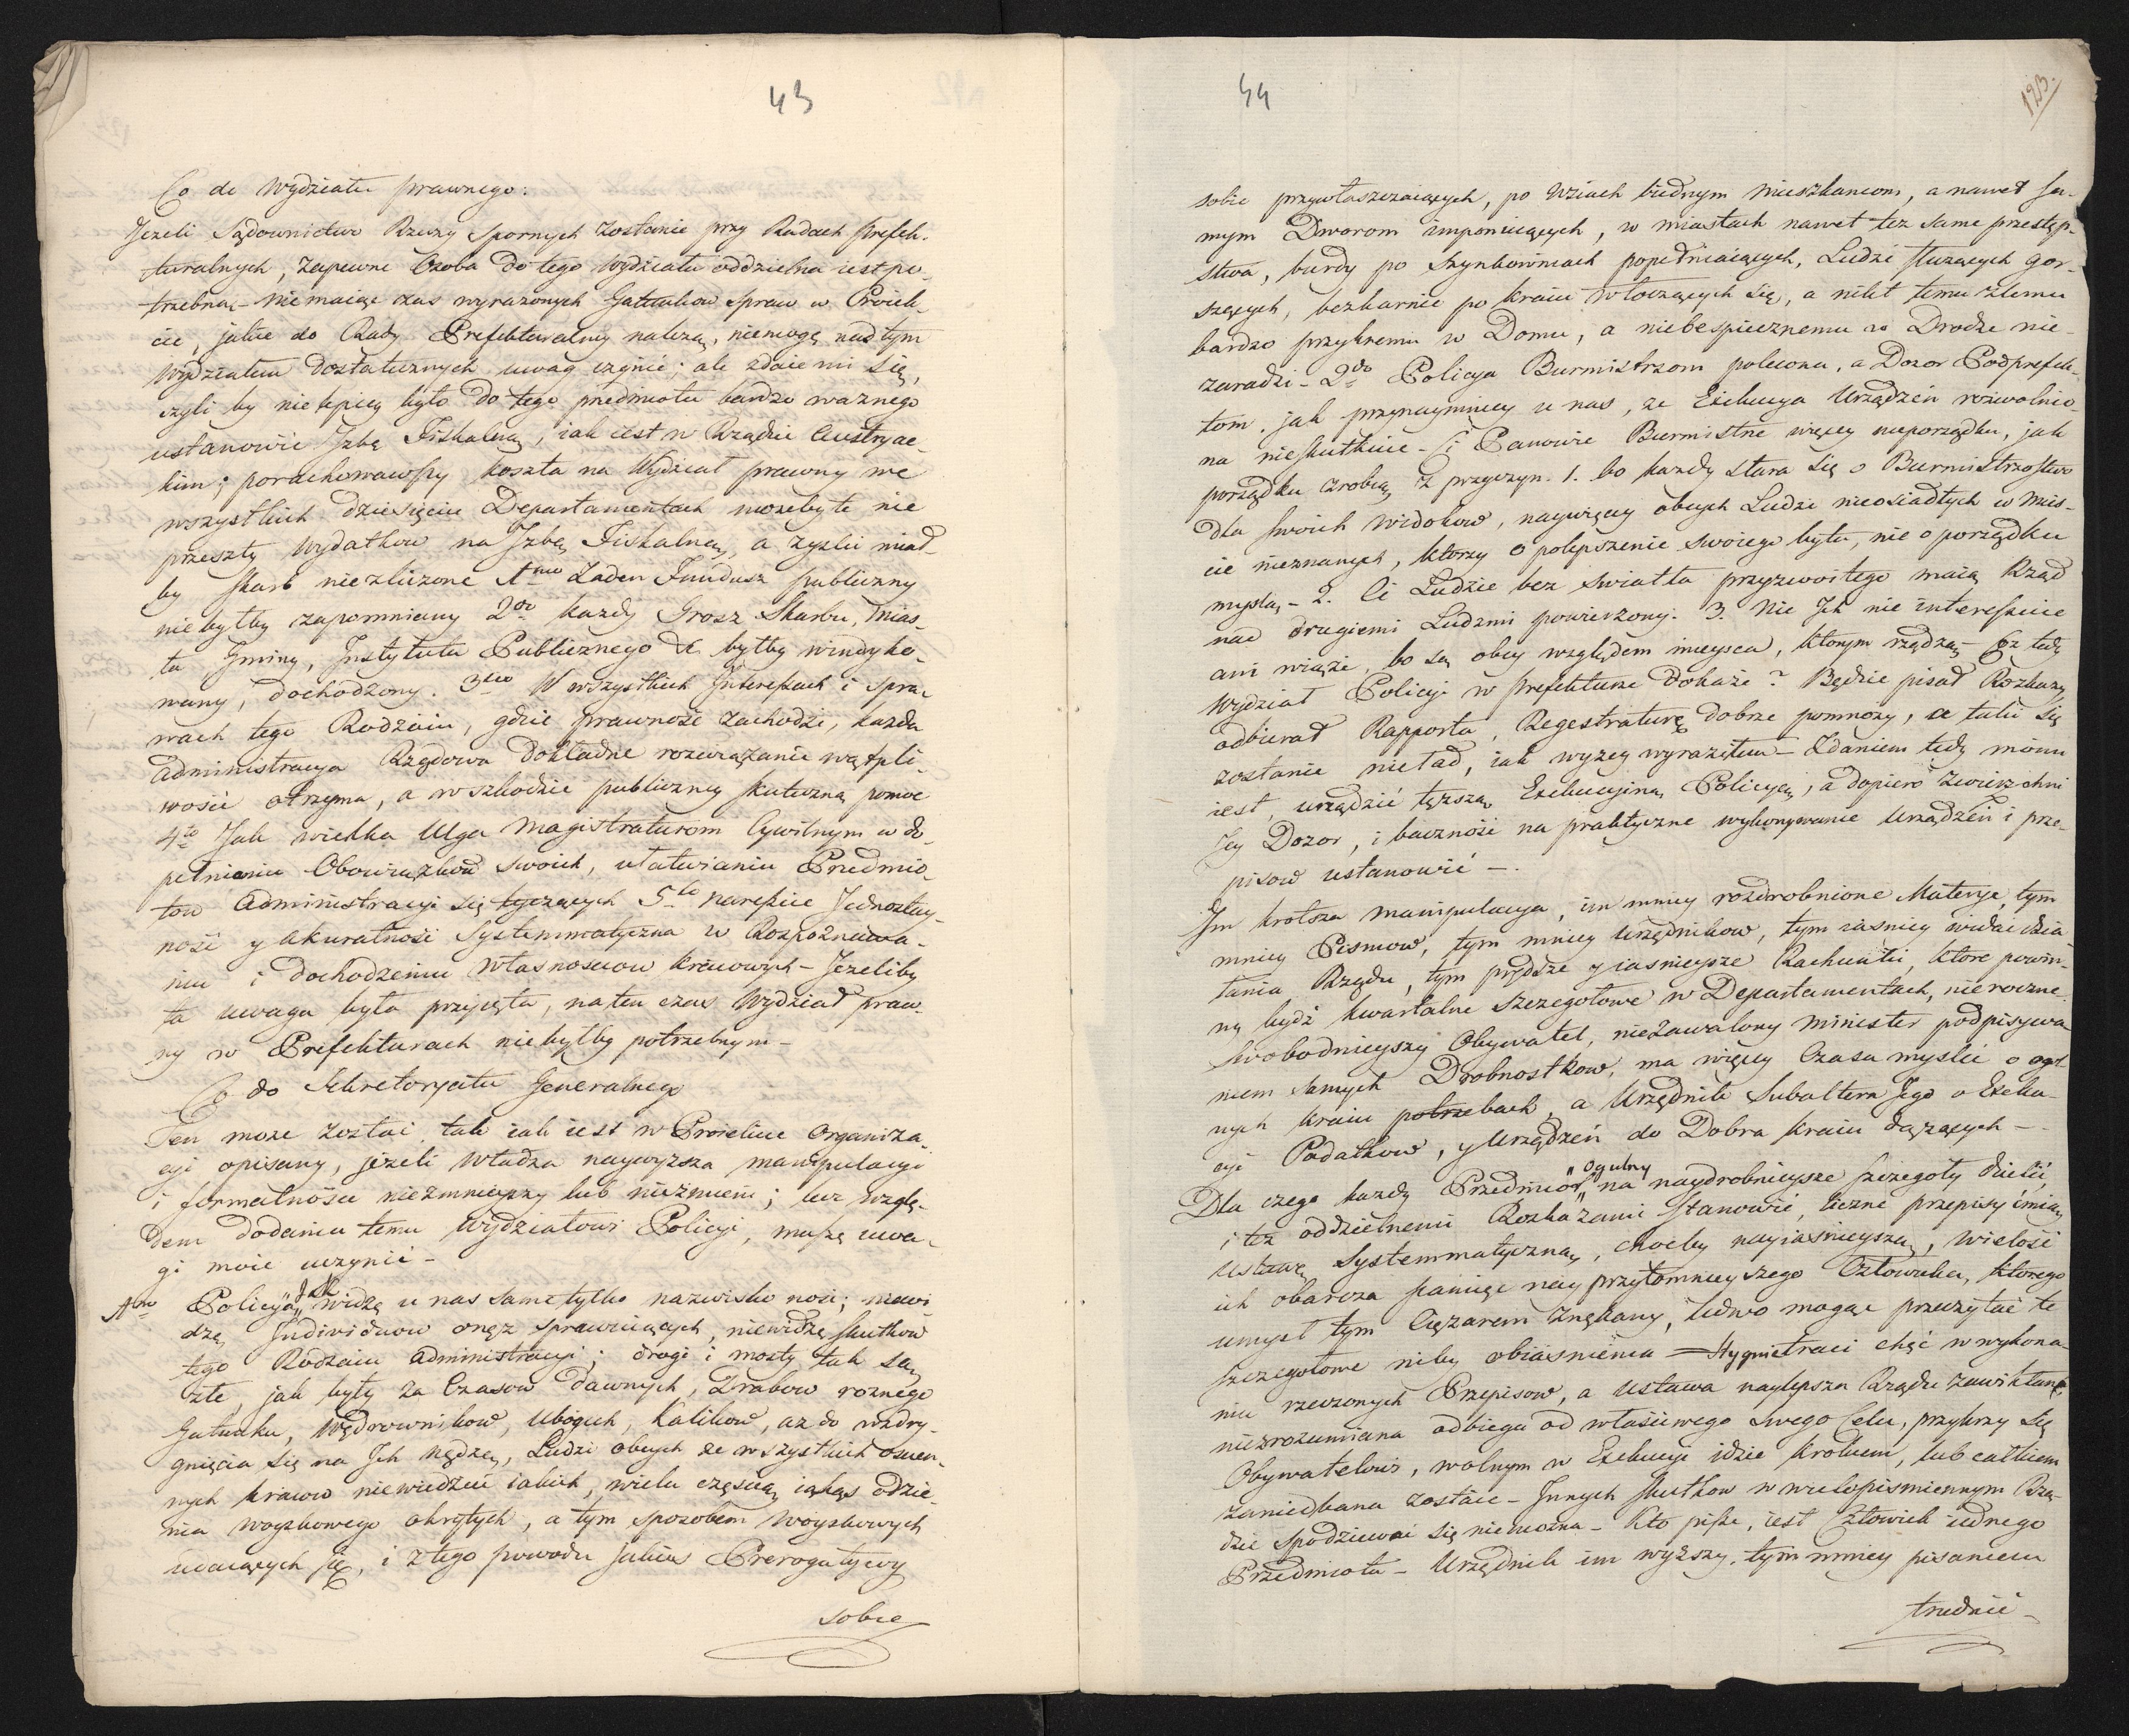 43
Co do Wydziału prawnego:
Jezeli Sądownictwo Rzeczy Spornych zostanie przy Radach Prefek-
turalnych, zapewne Osoba do tego Wydziału oddzielna iest po-
trzebną - niemaiąc zas wyrazonych Gatunkow spraw w Proiek-
cie, jakie do Rady Prefekturalney nalezą, niemogę nad tym
Wydziałem dostatecznych uwag czynić; ale zdaie mi się,
czyli by nielepiey było do tego przedmiotu bardzo waznego
ustanowić Jzbę Fiskalną, iak iest w Rządzie Austryac-
kim; porachowawszy koszta na Wydział prawny we
wszystkich dziesięciu Departamentach mozebyte nie
przeszły wydatkow na Jzbę Fiskalną, a zyski miał-
by Skarb niezliczone 1mo Zaden Fundusz publiczny
nie byłby zapomniany 2do kazdy Grosz Skarbu, Mias-
ta Gminy, Jnstytutu Publicznego &c byłby windyko-
wany, dochodzony. 3tio W wszystkich Jnteressach i Spra-
wach tego Rodzaiu, gdzie prawność zachodzi, kazda
Administracya Rządowa dokładne rozwiązanie wątpli-
wości otrzyma, a w szkodzie publiczney skuteczną pomoc
4to Jak wielka Ulga Magistraturom Cywilnym w do-
pełnianiu Obowiązkow swoich, ułatwianiu Przedmio-
tow Administracyi się tyczących 5to nareszcie Jednostay-
ność y Akuratność Systemmatyczna w Rozpoznawa-
niu i dochodzeniu Własnosciow kraiowych - Jezeliby
ta uwaga była przyięta, na ten czas Wydział praw-
ny w Prefekturach niebyłby potrzebnym -
Co do Sekretaryatu Generalnego
Ten moze zostać, tak iak iest w Proiekcie Organiza-
cyi opisany, jezeli Władza naywyzsza manipulacyi
i formalnościi niezmnieyszy lub niezmieni; lecz wzglę-
dem dodania temu Wydziałowi Policyi, muszę uwa-
gi moie uczynić -
1mo Policyia, Jak widzę u nas same tylko nazwisko nosi; niewi
dzę Jndividuow onęz sprawuiących, niewidzę skutkow
tego Rodzaiu Administracyi; drogi i mosty tak są
złe, jak były za Czasow dawnych, Drabow roznego
Gatunku, Wędrownikow, Ubogich, Kalikow, az do wzdry-
gnięcia się na Jch nędzę, Ludzi obcych ze wszystkich oscien-
nych kraiow niewiedzieć iakich, wielu częścią iakąs odzie-
nia Woyskowego okrytych, a tym sposobem Woyskowych
udaiących się, i z tego powodu jakieś Prerogatywy
sobie
44
123.
sobie przywłaszczaiących, po wsiach biednym mieszkancom, a nawet sa-
mym Dworom imponuiących, w miastach nawet tez same przestęp-
stwa, burdy po Szynkowniach popełniaiących, Ludzi słuzących gor-
szących, bezkarnie po kraiu włoczących się, a nikt temu złemu
bardzo przykremu w Domu, a niebespiecznemu w Drodze nie-
zaradzi - 2do Policya Burmistrzom polecona, a Dozor Podprefek-
tom, jak przynaymniey u nas, ze Exekucya Urządzeń rozwolnio-
na nieskutkuie - Ci Panowie Burmistrze więcey nieporządku, jak
porządku zrobią, z przyczyn. 1. bo kazdy stara się o Burmistrzostwo
dla swoich widokow, naywięcey obcych Ludzi nieosiadłych w Mies-
cie nieznanych, ktorzy o polepszenie swoiego bytu, nie o porządku
myslą - 2. Ci Ludzie bez swiatła przyzwoitego maią Rząd
nad drugiemi Ludzmi powierzony. 3. Nic Jch nie interessuie
ani wiąze, bo są obcy względem mieysca, ktorym rządzą - Coz tedy
Wydział Policyi w Prefekturze dokaze? Będzie pisał Rozkazy
odbierał Rapporta, Regestraturę dobrze pomnozy, a taki się
zostanie nieład, iak wyzey wyraziłem - Zdaniem tedy moim
iest, urządzić tęzszą Exekucyiną Policyą, a dopiero zwierzchni
Jey Dozor, i baczność na praktyczne wykonywanie Urządzeń i prze-
pisow ustanowić -
Jm krotsza manipulacya, im mniey rozdrobnione Materye, tym
mniey Pismow, tym mniey Urzędnikow, tym iasniey widać dzia-
łania Rządu, tym prędsze y iasnieysze Rachunki, ktore powin-
ny bydź kwartalne szczegołowe w Departamentach, nie roczne.
Swobodnieyszy Obywatel, niezawalony Minister podpisywa-
niem samych Drobnostkow, ma więcey Czasu myslić o ogol-
nych kraiu potrzebach, a Urzędnik Subaltern Jego o Exeku-
cyi Podatkow, y Urządzeń do Dobra kraiu dązących -
Dla czego kazdy Przedmiot ogulny na naydrobnieysze szczegoły dzielić,
i tez oddzielnemi Rozkazami stanowić, liczne przepisy ćmią
Ustawę Systemmatyczną, choćby nayiasnieyszą, wielość
ich obarcza pamięc nayprzytomnieyszego Człowieka, ktorego
umysł tym Cięzarem znękany, ledwo mogąc przeczytać te
szczegołowe niby obiasnienia - Stygnie traci chęć w wykona-
niu rzeczonych Przepisow, a Ustawa naylepsza Rządu zawikłana,
niezrozumiana odbiega od właściwego swego Celu, przykrzy się
Obywatelowi, wolnym w Exekucyi idzie krokiem, lub całkiem
zaniedbana zostaie - Jnnych skutkow w wielopismiennym Rzą-
dzie spodziewać się niemozna - Kto pisze, iest Człowiek iednego
Przedmiotu - Urzędnik im wyzszy, tym mniey pisaniem
trudnić -